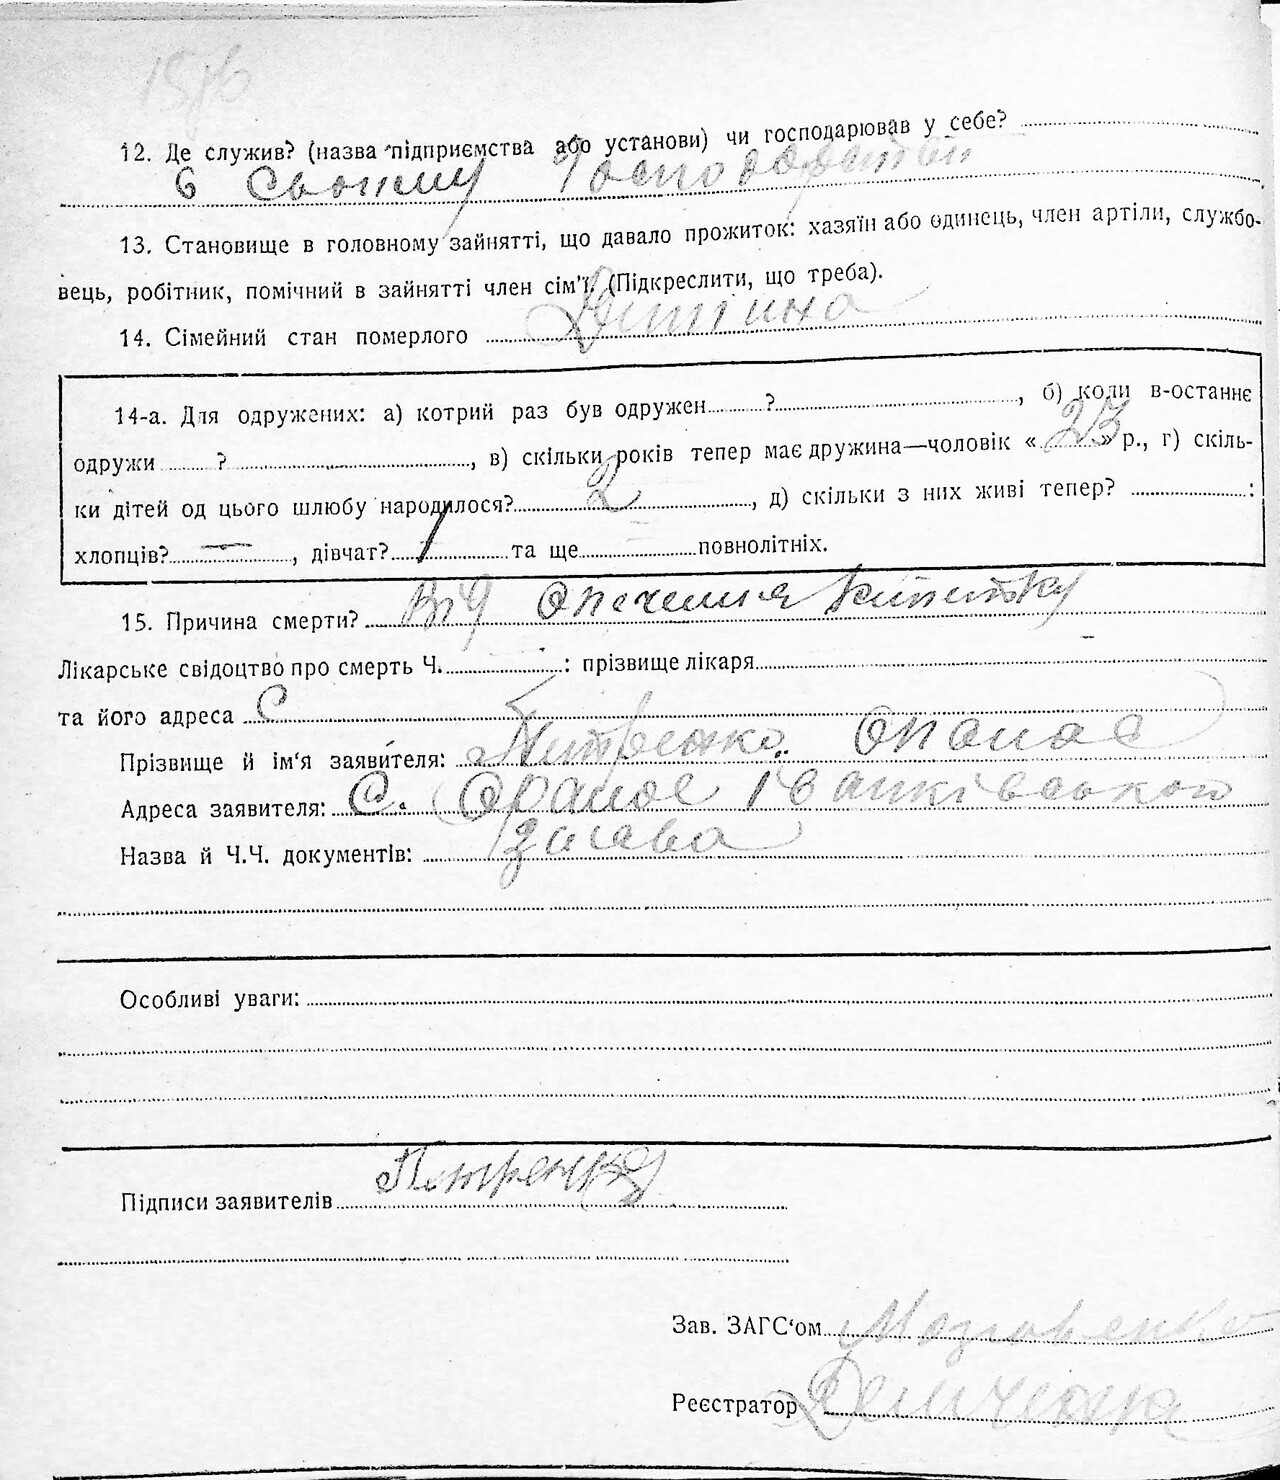 12. Де служив? (назва підприємства або установи) чи господарював у себе?
в своєму господарстві
13. Становище в головному зайнятті, що давало прожиток: хазяїн або одинець, член артіли, службо-
вець, робітник, помічний в зайнятті член сім'ї. (Підкреслити, що треба).
14. Сімейний стан померлого Дитина
14-а. Для одружених: а) котрий раз був одружен ?, б) коли в-останнє
одружи ?, в) скільки років тепер має дружина—чоловік « 23 » р., г) скіль-
ки дітей од цього шлюбу народилося? 2, д) скільки з них живі тепер? :
хлопців? —, дівчат? 1 та ще повнолітніх.
15. Причина смерти? Від опечения кипетку
Лікарське свідоцтво про смерть Ч. : прізвище лікаря
та його адреса С
Прізвище й ім'я заявителя: Петренко Опанас
Адреса заявителя: С. Оране Іванківського
Назва й Ч.Ч. документів:
Особливі уваги:
Підписи заявителів Петренко
Зав. ЗАГС'ом
Реєстратор